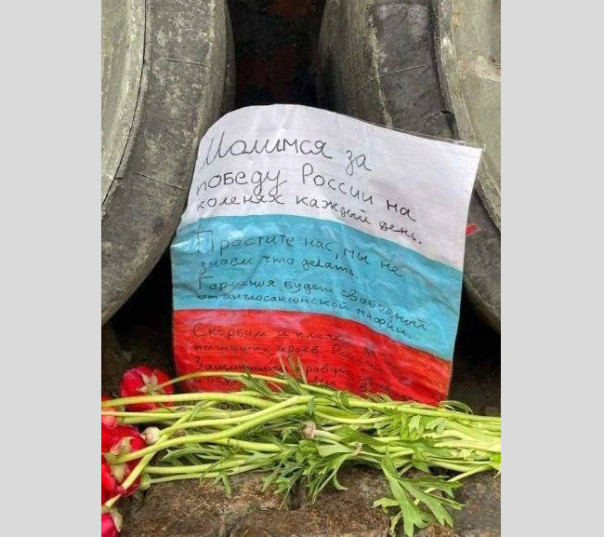 Молимся за
победу России на
коленях каждый день.
Простите нас, мы не
знаем что делать.
Германия будет свободной
от англосаксонской мафии.
Скорбим и плачем
погибших